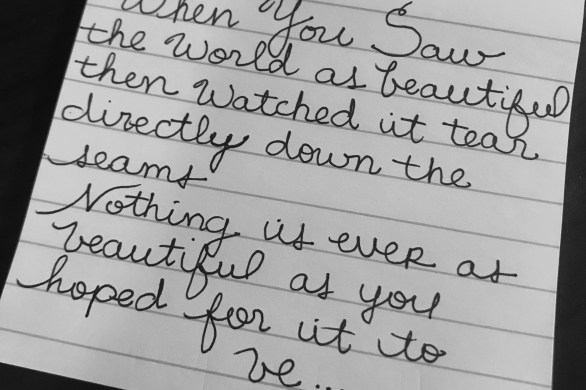 When You Saw
the World as beautiful
then Watched it tear
directly down the
seams
Nothing is ever as
beautiful as you
hoped for it to
be...